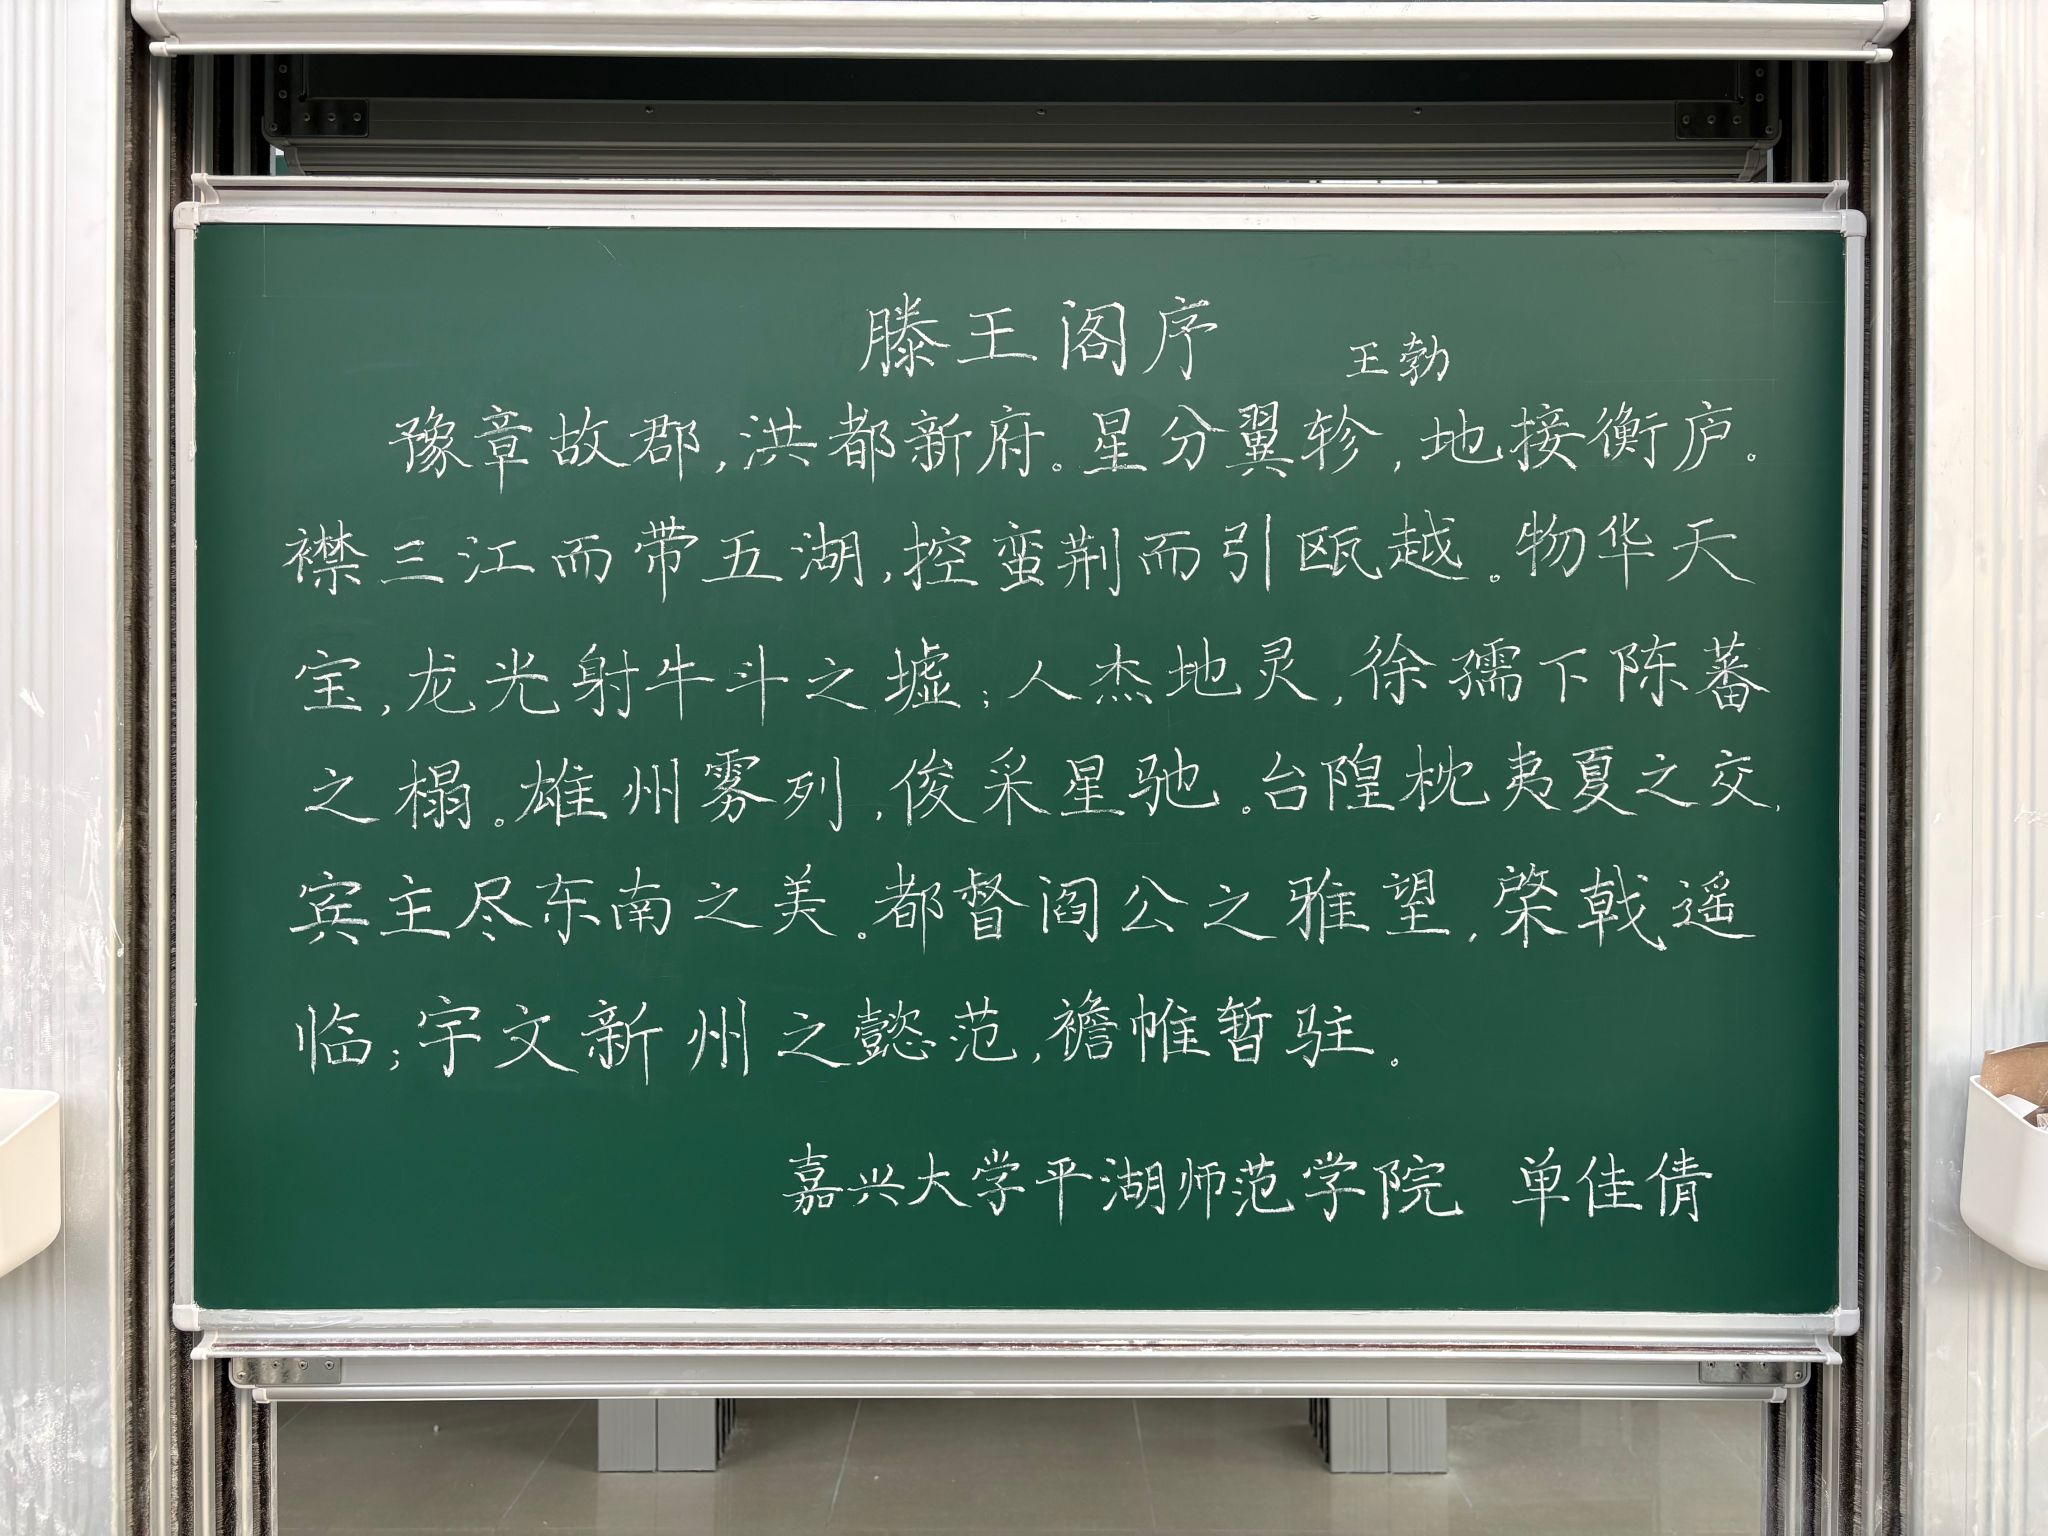 滕王阁序 王勃
豫章故郡,洪都新府。星分翼轸,地接衡庐。
襟三江而带五湖,控蛮荆而引瓯越。物华天
宝,龙光射牛斗之墟;人杰地灵,徐孺下陈蕃
之榻。雄州雾列,俊采星驰。台隍枕夷夏之交,
宾主尽东南之美。都督阎公之雅望,棨戟遥
临;宇文新州之懿范,襜帷暂驻。
嘉兴大学平湖师范学院 单佳倩